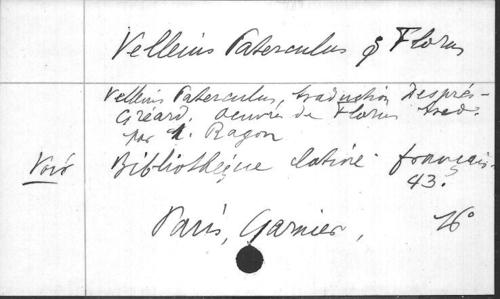 Velleius Paterculus & Florus
Velleius Paterculus, traduction Després-
Gréard, Oeuvres de Florus trad.
par Ragon
Voir Bibliothèque latine français.
43.
Paris, Garnier, 16°